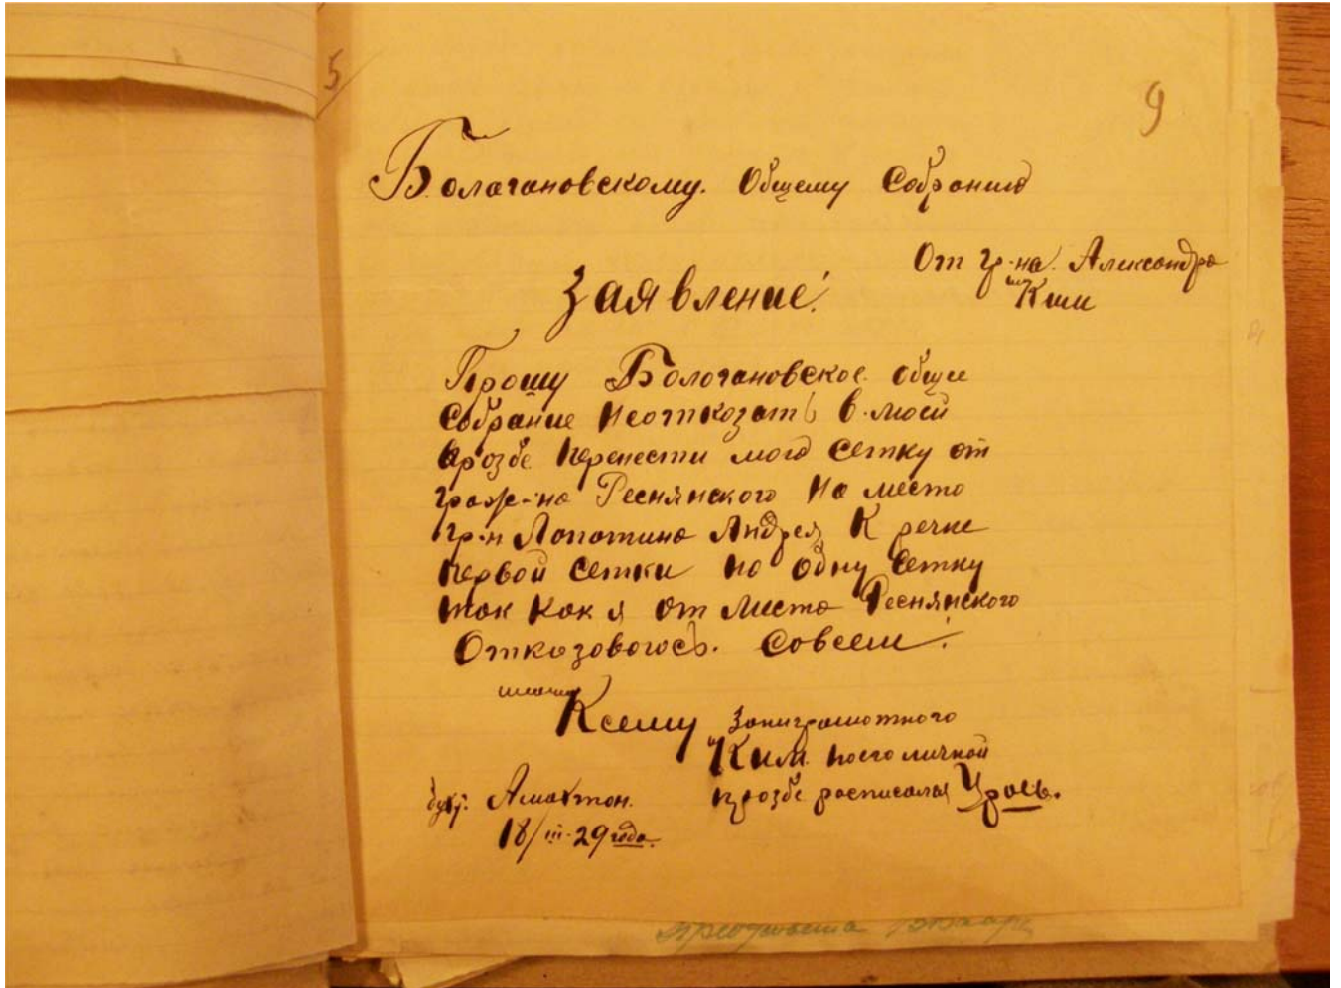 5
9
Бологановскому. Общему Собранию
От гр-на. Александра
Ким
Заявление!
Прошу Бологановское общи
Собрание Неотказать в моей
прозбе перенести мою сетку от
граж-на Реснянского На место
гр-н Лопотина Андрея К речке
первой сетки на одну сетку
так как я от места Реснянского
Отказоваюсь. Совсем!
Ксему Заниграмотного
Ким. поего личной
прозбе росписался Урось.
бухт. Амахтон.
18/III-29 года.